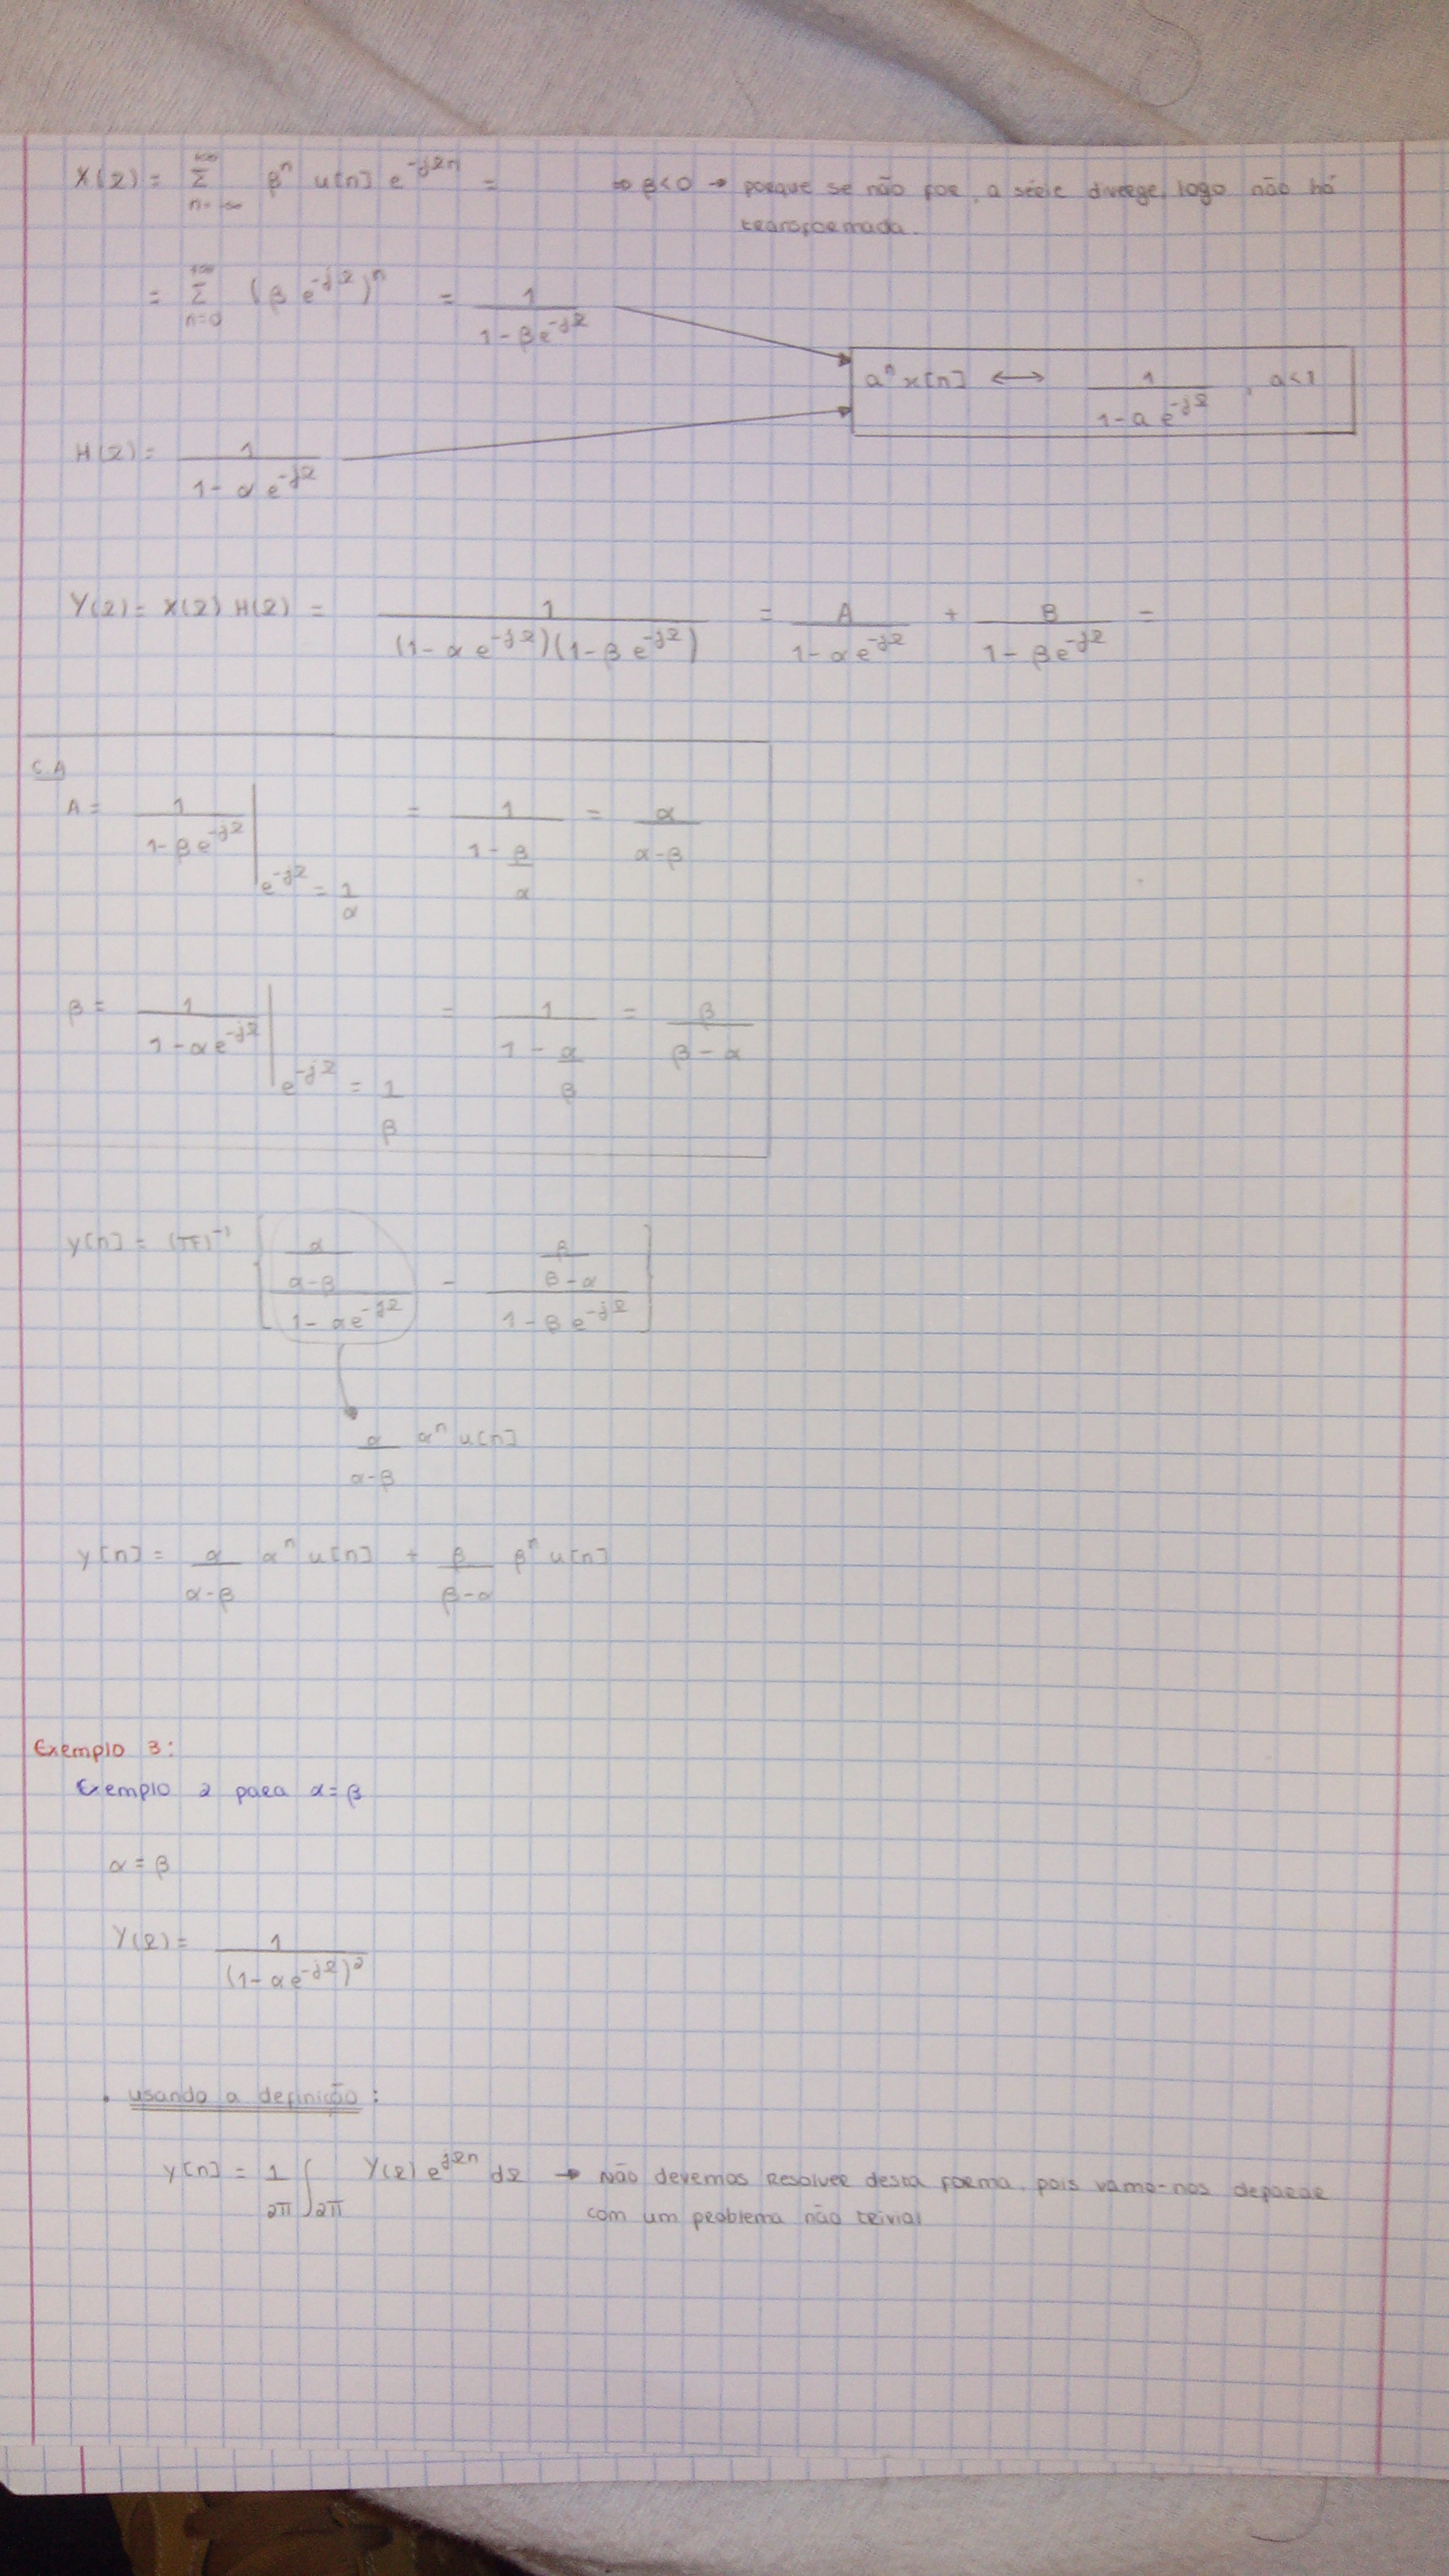 X(Ω) = Σ_{n=-∞}^{+∞} β^n u[n] e^{-jΩn} = ⇒ β<0 → porque se não for, a série diverge, logo não há
transformada.
= Σ_{n=0}^{+∞} (β e^{-jΩ})^n = 1/(1-βe^{-jΩ})
a^n x[n] ⟷ 1/(1-a e^{-jΩ}), a<1
H(Ω) = 1/(1-α e^{-jΩ})
Y(Ω) = X(Ω) H(Ω) = 1/((1-α e^{-jΩ})(1-β e^{-jΩ})) = A/(1-αe^{-jΩ}) + B/(1-βe^{-jΩ}) =
C.A
A = 1/(1-βe^{-jΩ}) |_{e^{-jΩ} = 1/α} = 1/(1-β/α) = α/(α-β)
β = 1/(1-αe^{-jΩ}) |_{e^{-jΩ} = 1/β} = 1/(1-α/β) = β/(β-α)
y[n] = (TF)^{-1} { (α/(α-β))/(1-αe^{-jΩ}) - (β/(β-α))/(1-βe^{-jΩ}) }
α/(α-β) α^n u[n]
y[n] = α/(α-β) α^n u[n] + β/(β-α) β^n u[n]
Exemplo 3:
Exemplo 2 para α=β
α=β
Y(Ω) = 1/(1-αe^{-jΩ})^2
• usando a definição:
y[n] = 1/2π ∫_{2π} Y(Ω) e^{jΩn} dΩ → Não devemos resolver desta forma, pois vamo-nos deparar
com um problema não trivial